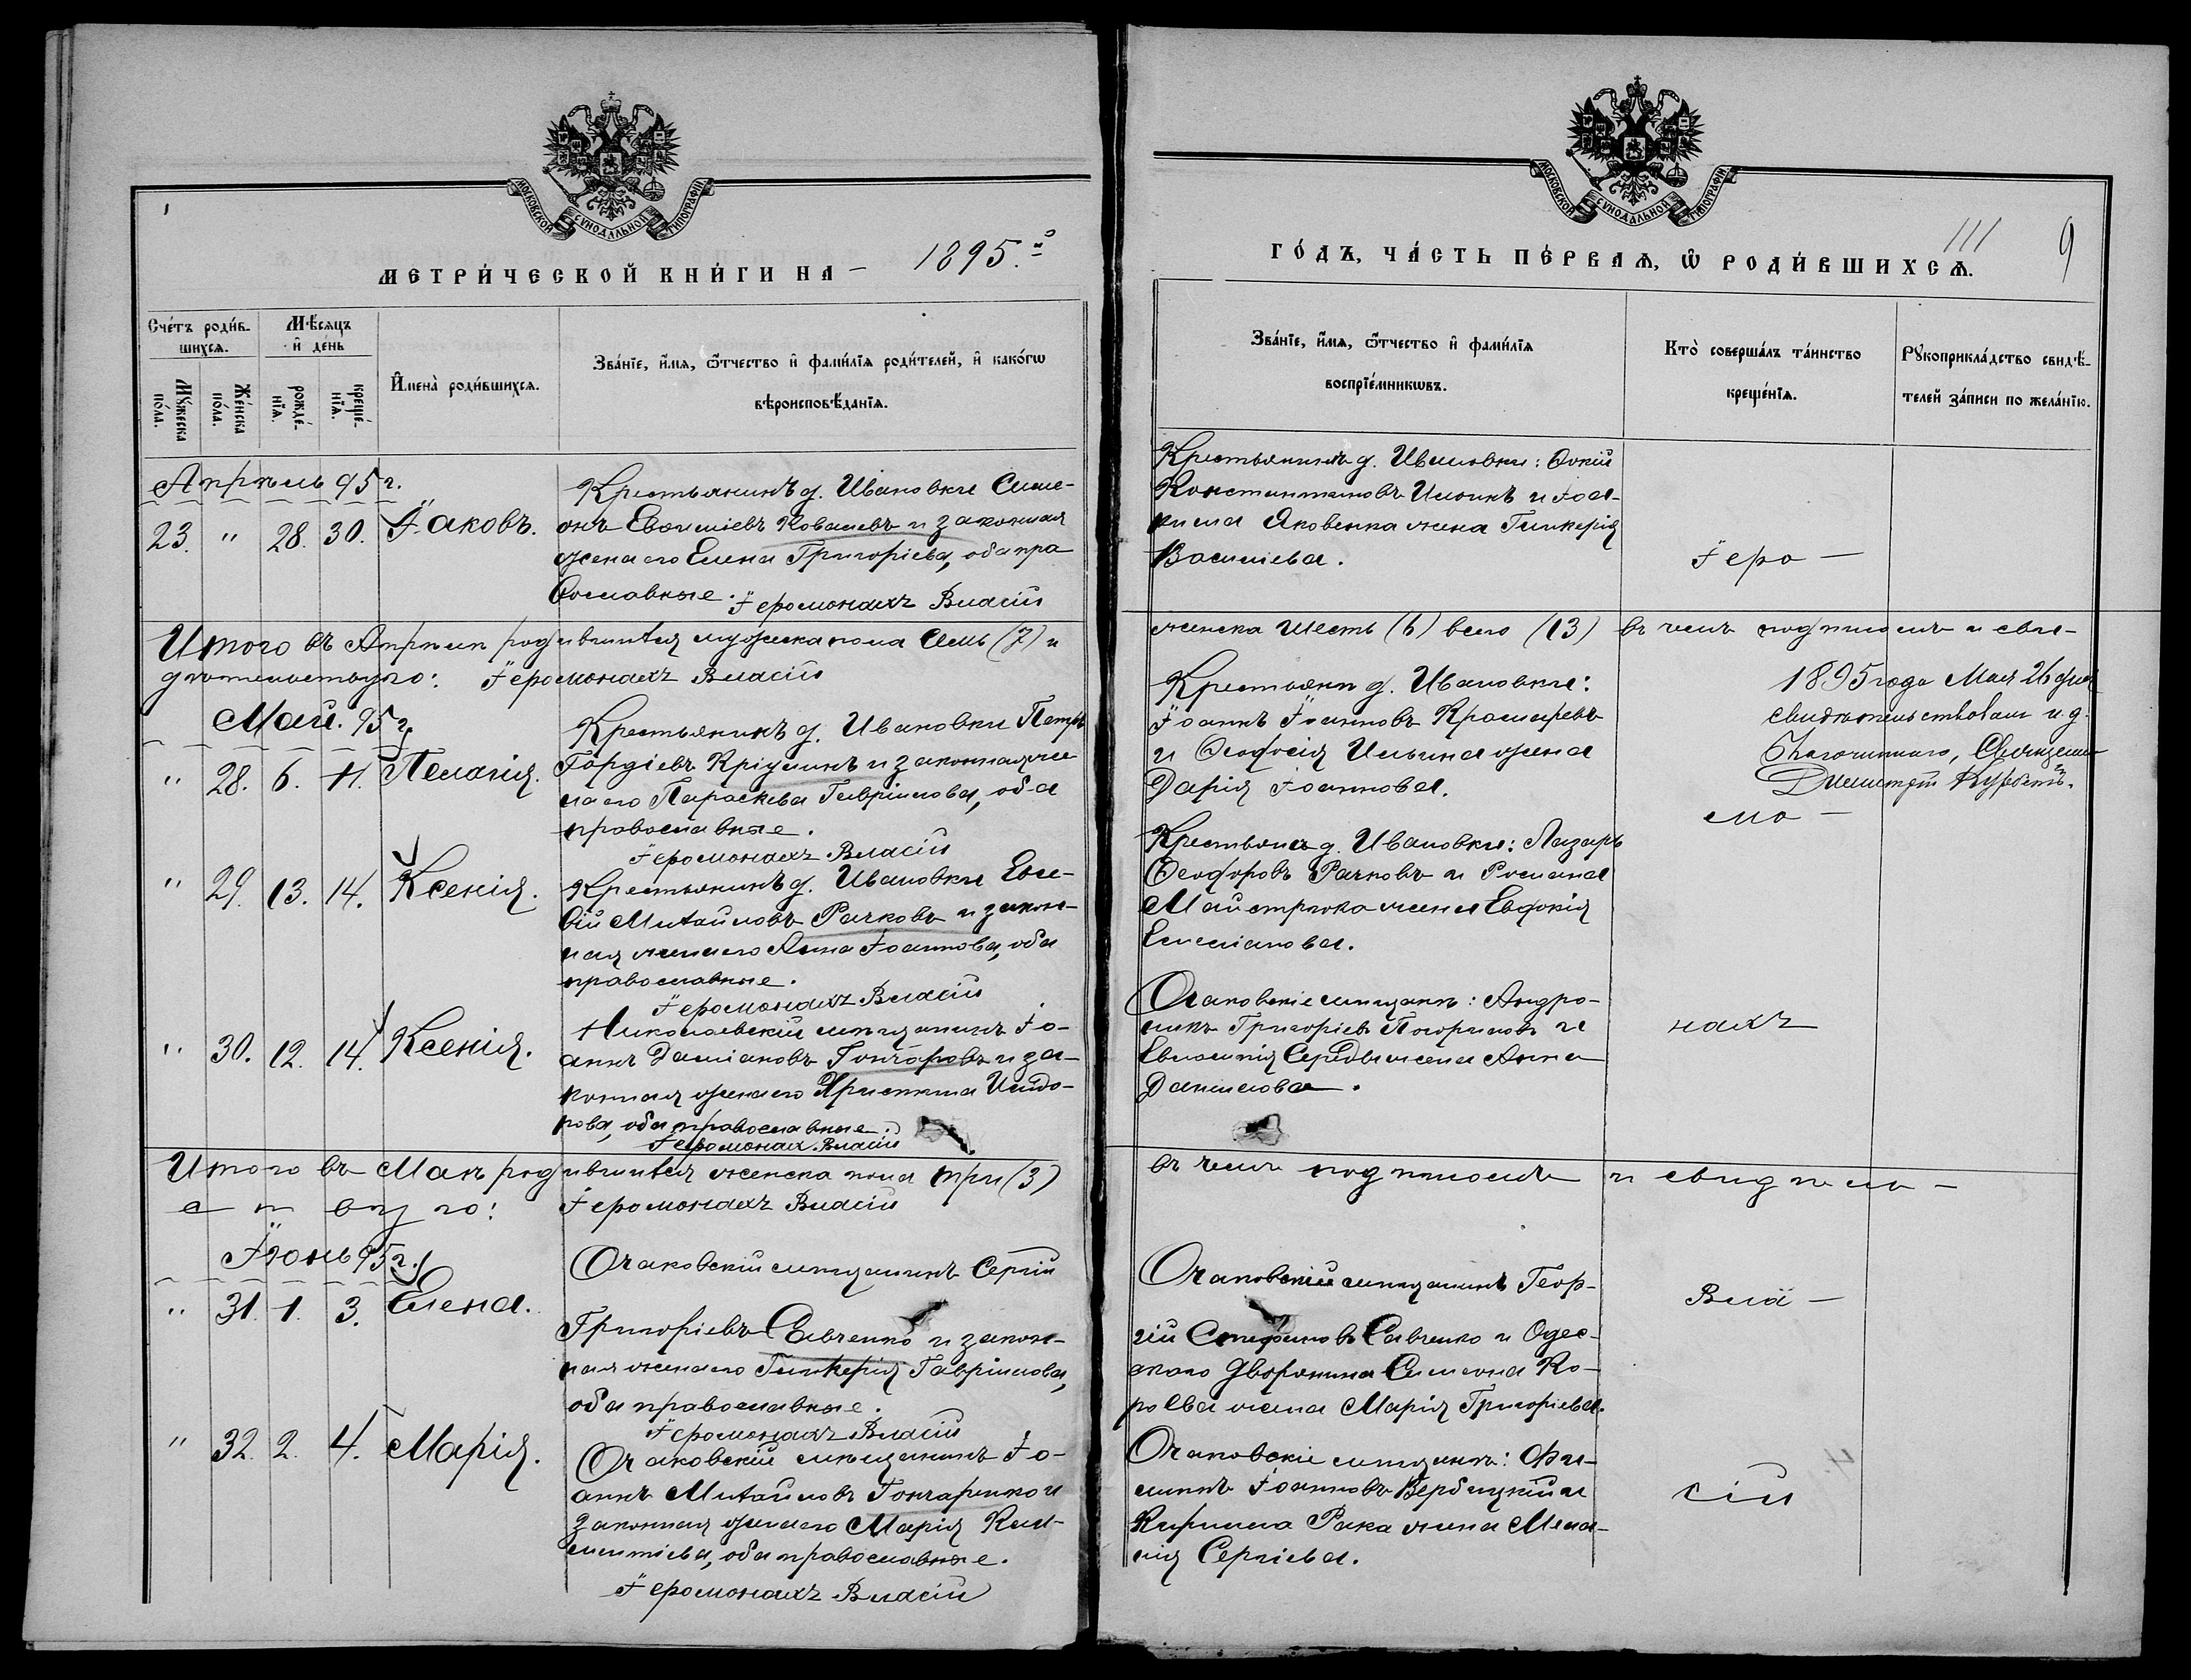 МОСКОВСКОЙ СѴНОДАЛЬНОЙ ТИПОГРАФІИ
МЕТРИ́ЧЕСКОЙ КНИ́ГИ НА – 1895.й
Сче́тъ роди́в-
шихсѧ.
Мѣ́сѧцъ
и҆ де́нь
Мꙋ́жеска
по́ла.
Же́нска
по́ла.
рожде́-
нїѧ.
креще́-
нїѧ.
И҆мена̀ роди́вшихсѧ.
Зва́нїе, и҆́мѧ, ѻ҆́тчество и҆ фами́лїѧ роди́телей, и҆ како́гѡ
вѣроисповѣ́данїѧ.
Апрѣль 95 г.
23. " 28. 30. Іаковъ.
Крестьянинъ д. Ивановки Симе-
онъ Евѳиміевъ Ковалевъ и законная
жена его Елена Григоріева, оба пра-
вославные. Іеромонахъ Власій
Итого въ Апрѣлѣ родившихся мужеска пола семь (7) и
дѣтельствую: Іеромонахъ Власій
Май. 95 г.
" 28. 6. 11. Пелагія.
Крестьянинъ д. Ивановки Петръ
Гордіевъ и законная же-
на его Параскева Гавріилова, оба
православные.
Іеромонахъ Власій
" 29. 13. 14. Ксенія.
Крестьянинъ д. Ивановки Евсе-
вій Михайловъ Рачковъ и закон-
ная жена его Анна Іоаннова, оба
православные.
Іеромонахъ Власій
" 30. 12. 14. Ксенія.
Николаевскій мѣщанинъ Іо-
аннъ Даміановъ Гончаровъ и за-
конная жена его Христина Исидо-
рова, оба православные.
Іеромонах. Власій
Итого въ Маѣ родившихся женска пола три (3)
с т вую: Іеромонахъ Власій
Іюнь 95 г.
" 31. 1. 3. Елена.
Очаковскій мѣщанинъ Сергій
Григоріевъ Савченко и закон-
ная жена его Гликерія Гавріилова,
оба православные.
Іеромонахъ Власій
" 32. 2. 4. Марія.
Очаковскій мѣщанинъ Іо-
аннъ Михайловъ Гончаренко и
законная жена его Марія Кли-
ментіева, оба православные.
Іеромонахъ Власій
МОСКОВСКОЙ СѴНОДАЛЬНОЙ ТИПОГРАФІИ
111 9
ГО́ДЪ, ЧА́СТЬ ПЕ́РВАѦ, Ѡ҆ РОДИ́ВШИХСѦ.
Зва́нїе, и҆́мѧ, ѻ҆́тчество и҆ фами́лїѧ
воспрїе́мникѡвъ.
Кто̀ соверша́лъ та́инство
креще́нїѧ.
Рꙋкоприкла́дство свидѣ́-
телей за́писи по жела́нїю.
Крестьянинъ д. Ивановки: Ѳокій
Константиновъ и Іоа-
кима Яковенка жена Гликерія
Васильева.
Іеро –
женска шесть (6) всего (13) въ чемъ подписомъ и сви-
Крестьяне д. Ивановки:
Іоаннъ Іоанновъ
и Ѳеодосія Ильина жена
Дарія Іоаннова.
1895 года Мая 26 дня
свидѣтельствовалъ и. д.
Благочиннаго, Священникъ
Димитрій
мо –
Крестьяне д. Ивановки: Лазарь
Ѳеодоровъ Рачковъ и Романа
жена Евдокія
Емеліанова.
Очаковскіе мѣщане: Андро-
никъ Григоріевъ и
жена Анна
Данилова.
нахъ
въ чемъ подписомъ и свидѣтель –
Очаковскій мѣщанинъ Геор-
гій Стефановъ Савченко и Одес-
скаго дворянина Симеона Ко-
ролева жена Марія Григоріева.
Вла –
Очаковскіе мѣщане: Фи-
липпъ Іоанновъ Вербицкій и
Кирилла Рака жена Мела-
нія Сергіева.
сій